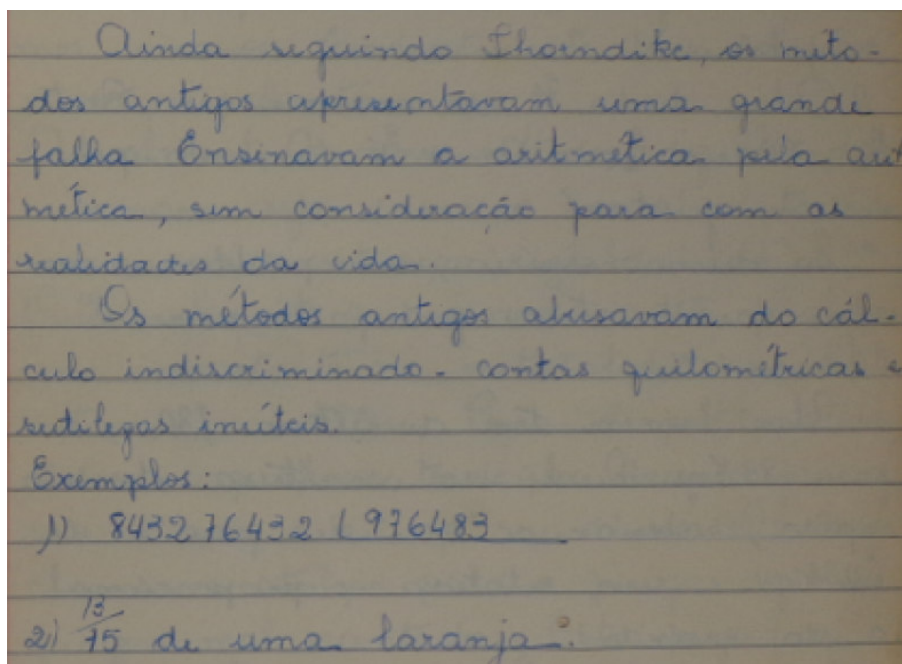 Ainda seguindo Thorndike, os méto-
dos antigos apresentavam uma grande
falha Ensinavam a aritmética pela arit
mética, sem consideração para com as
realidades da vida.
Os métodos antigos abusavam do cál-
culo indiscriminado - contas quilométricas e
inúteis.
Exemplos:
1) 843276432 L 976483
2) 13/75 de uma laranja.